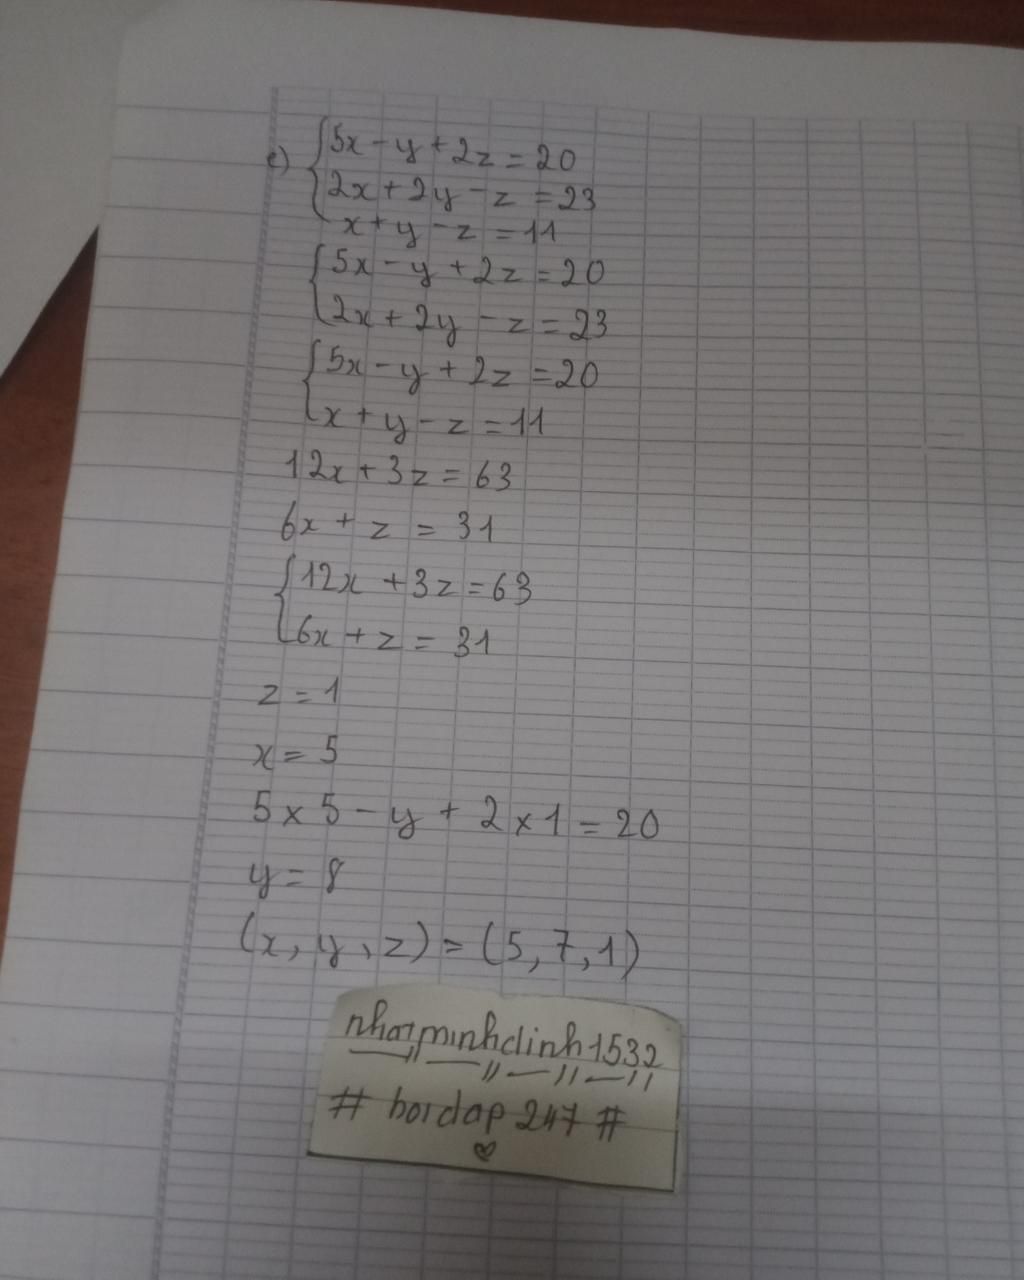 e) { 5x - y + 2z = 20
2x + 2y - z = 23
x + y - z = 11
{ 5x - y + 2z = 20
2x + 2y - z = 23
{ 5x - y + 2z = 20
x + y - z = 11
12x + 3z = 63
6x + z = 31
{ 12x + 3z = 63
6x + z = 31
z = 1
x = 5
5 × 5 - y + 2 × 1 = 20
y = 8
(x, y, z) = (5, 7, 1)
nhatminhdinh1532
# hoidap 247 #